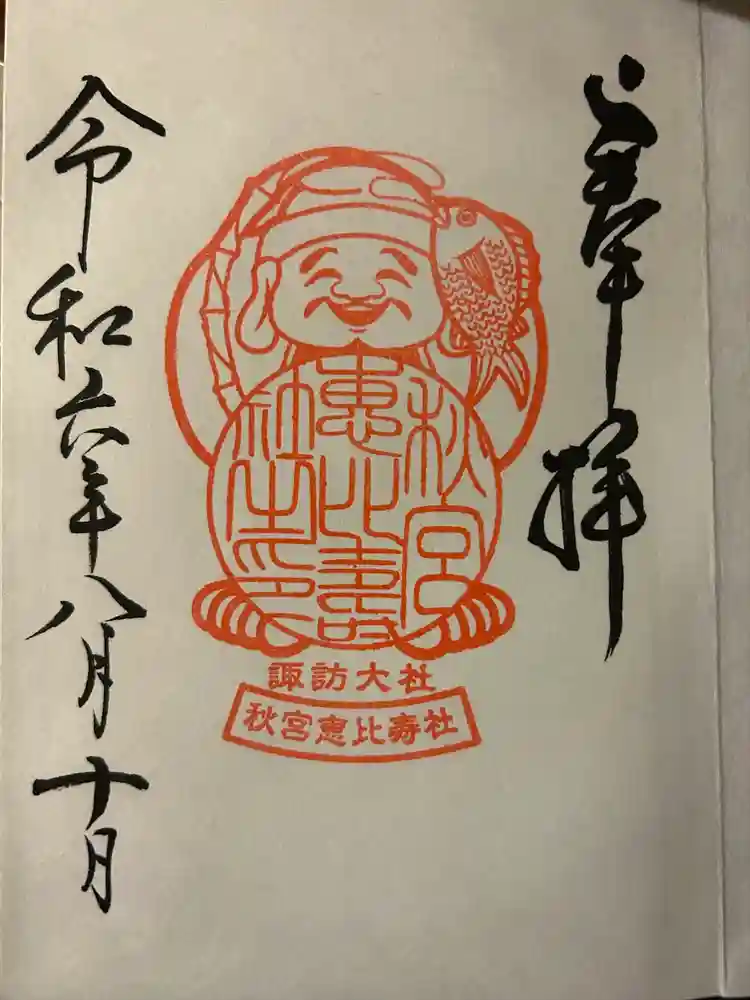 奉拝
秋宮
恵比壽
社之印
諏訪大社
秋宮恵比寿社
令和六年八月十日